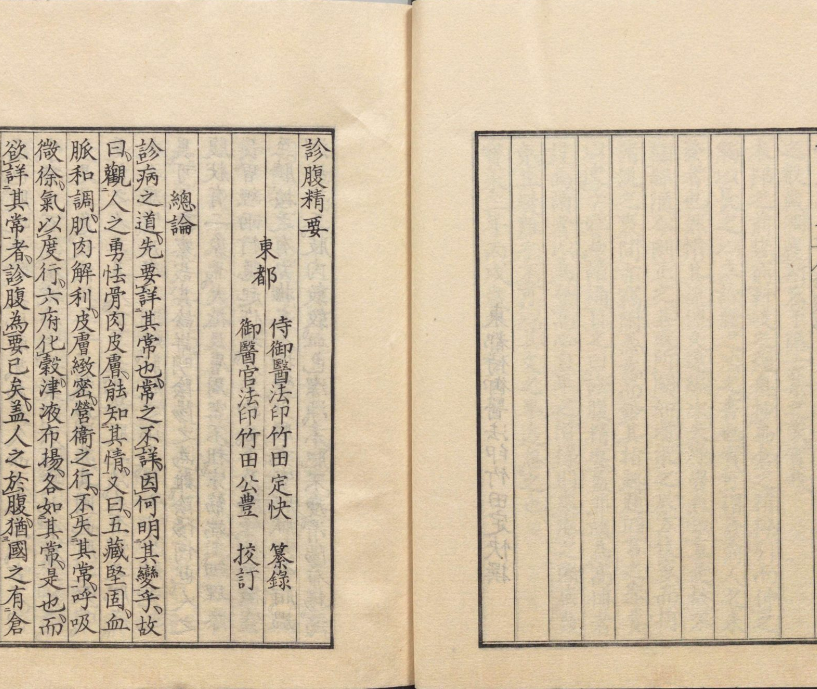 診腹精要
東都
侍御醫法印竹田定快 纂錄
御醫官法印竹田公豊 挍訂
總論
診病之道先要詳其常也常之不詳因何明其變乎故
曰觀人之勇怯骨肉皮膚能知其情又曰五藏堅固血
脈和調肌肉解利皮膚緻密營衞之行不失其常呼吸
微徐氣以度行六府化穀津液布揚各如其常是也而
欲詳其常者診腹為要已矣盖人之於腹猶國之有倉